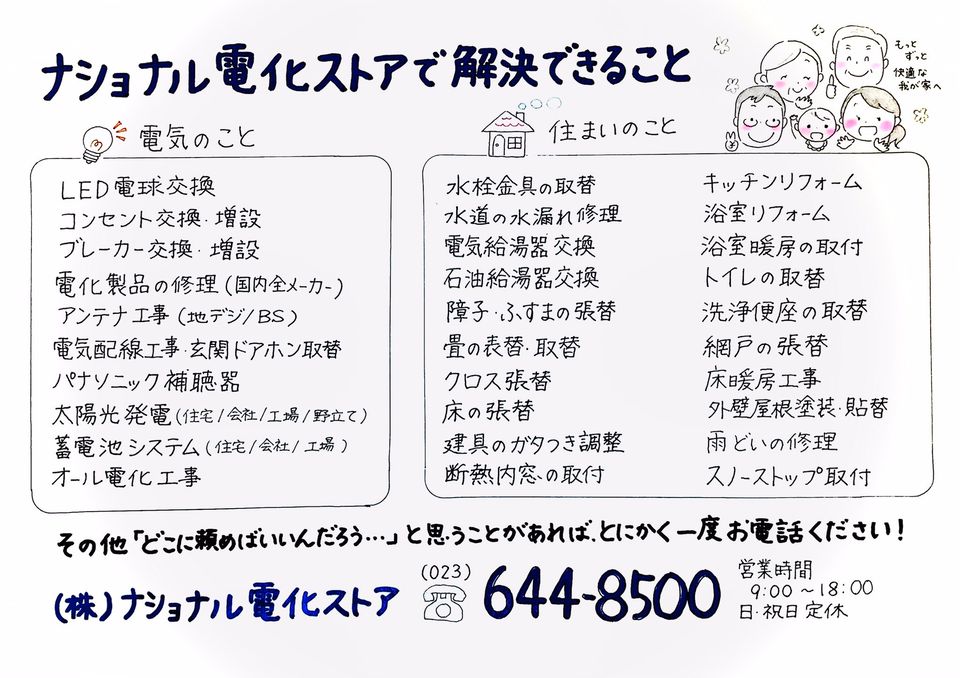 ナショナル電化ストアで解決できること
もっと
ずっと
快適な
我が家へ
電気のこと
LED電球交換
コンセント交換・増設
ブレーカー交換・増設
電化製品の修理(国内全メーカー)
アンテナ工事(地デジ/BS)
電気配線工事・玄関ドアホン取替
パナソニック補聴器
太陽光発電(住宅/会社/工場/野立て)
蓄電池システム(住宅/会社/工場)
オール電化工事
住まいのこと
水栓金具の取替
水道の水漏れ修理
電気給湯器交換
石油給湯器交換
障子・ふすまの張替
畳の表替・取替
クロス張替
床の張替
建具のガタつき調整
断熱内窓の取付
キッチンリフォーム
浴室リフォーム
浴室暖房の取付
トイレの取替
洗浄便座の取替
網戸の張替
床暖房工事
外壁屋根塗装・貼替
雨どいの修理
スノーストップ取付
その他「どこに頼めばいいんだろう…」と思うことがあれば、とにかく一度お電話ください!
(株)ナショナル電化ストア
(023)
644-8500
営業時間
9:00〜18:00
日・祝日定休